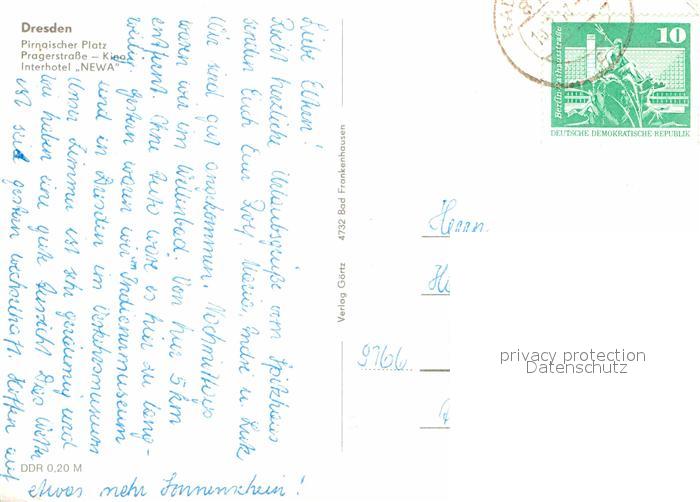 Dresden
Pirnaischer Platz
Pragerstraße – Kino
Interhotel „NEWA"
Liebe Eltern!
Recht herzliche Urlaubsgrüße vom Spitzhaus
senden Euch Eure Rolf, Maria, André u. Dirk
Wir sind gut angekommen. Nachmittags
waren wir im Wellenbad. Von hier 5 km
entfernt. Ohne Auto wäre es hier zu lang-
weilig. Gestern waren wir im Indianermuseum
und in Dresden im Verkehrsmuseum
Unser Zimmer ist sehr geräumig und
wir haben eine gute Aussicht. Das Wetter
ist seit gestern wechselhaft. Hoffen auf
etwas mehr Sonnenschein!
DDR 0,20 M
Verlag Görtz 4732 Bad Frankenhausen
10
Berlin, Rathausstraße
DEUTSCHE DEMOKRATISCHE REPUBLIK
Herrn
9766
privacy protection
Datenschutz